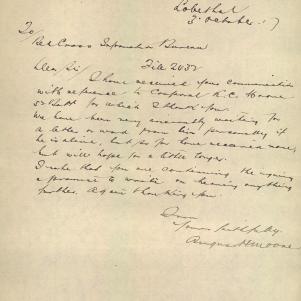 Lobethal
3 October 17
To/
Red Cross Information Bureau
Dear Sir/ File 2032
I have received your communication
with reference to Corporal R.C. Moore
52 Batt for which I thank you.
We have been very anxiously waiting for
a letter or word from him personally if
he is alive, but so far have received none,
but will hope for a little longer.
I note that you are continuing the inquiry
& promise to write on hearing anything
further. Again thanking you.
I am
Yours faithfully
Angus Moore